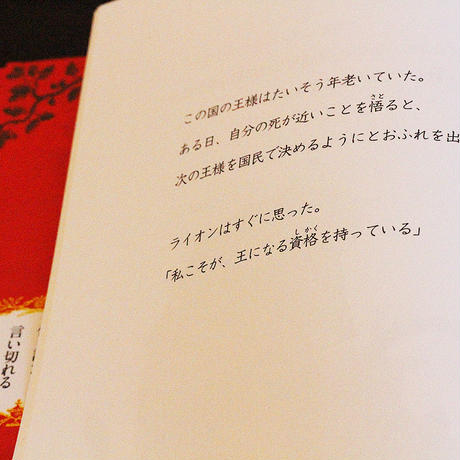 この国の王様はたいそう年老いていた。
ある日、自分の死が近いことを悟ると、
次の王様を国民で決めるようにとおふれを出
ライオンはすぐに思った。
「私こそが、王になる資格を持っている」
言い切れる